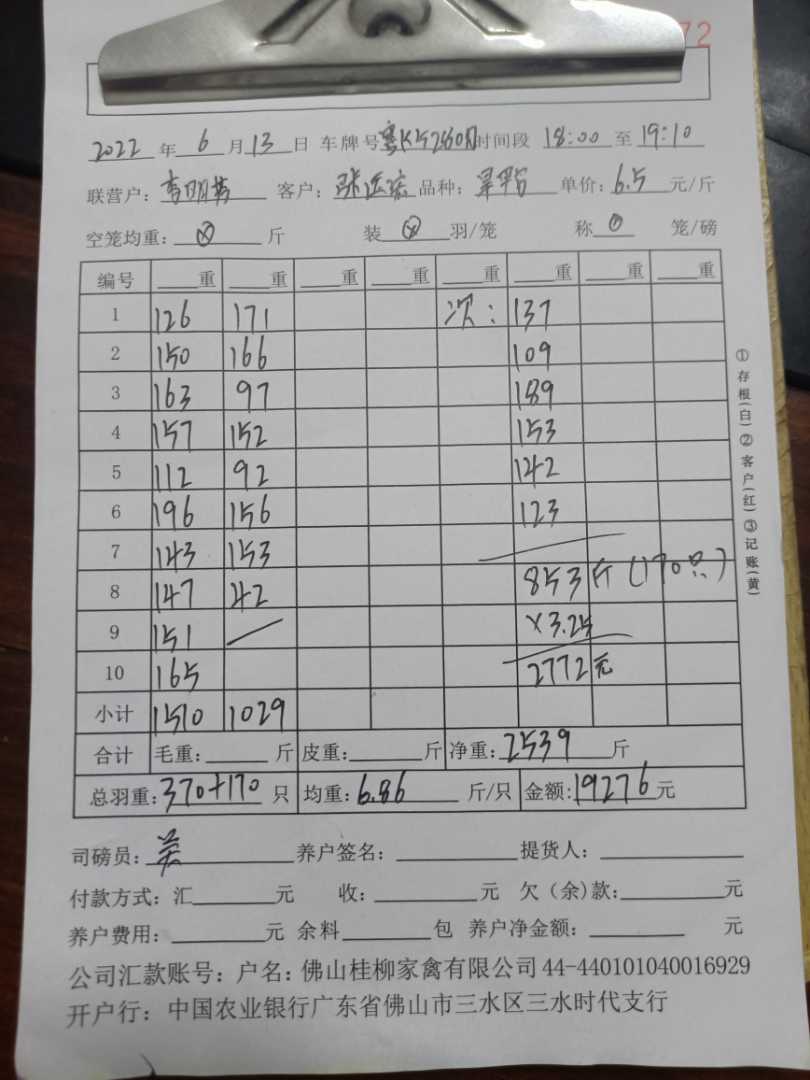 72
2022年6月13日 车牌号粤K 时间段 18:00 至 19:10
联营户: 李明 客户: 品种: 单价: 6.5 元/斤
空笼均重: ⊗ 斤 装 ⊗ 羽/笼 称 笼/磅
编号 重 重 重 重 重 重 重 重
1 126 171 次: 137
2 150 166 109
3 163 97 189
4 157 152 153
5 112 92 142
6 196 156 123
7 143 153
8 147 42 853斤(170只)
9 151 / ×3.25
10 165 2772元
小计 1510 1029
合计 毛重: 斤 皮重: 斤 净重: 2539 斤
总羽重: 370+170 只 均重: 6.86 斤/只 金额: 19276 元
司磅员: 养户签名: 提货人:
付款方式: 汇 元 收: 元 欠(余)款: 元
养户费用: 元 余料 包 养户净金额: 元
公司汇款账号: 户名: 佛山桂柳家禽有限公司 44-440101040016929
开户行: 中国农业银行广东省佛山市三水区三水时代支行
①存根(白)②客户(红)③记账(黄)